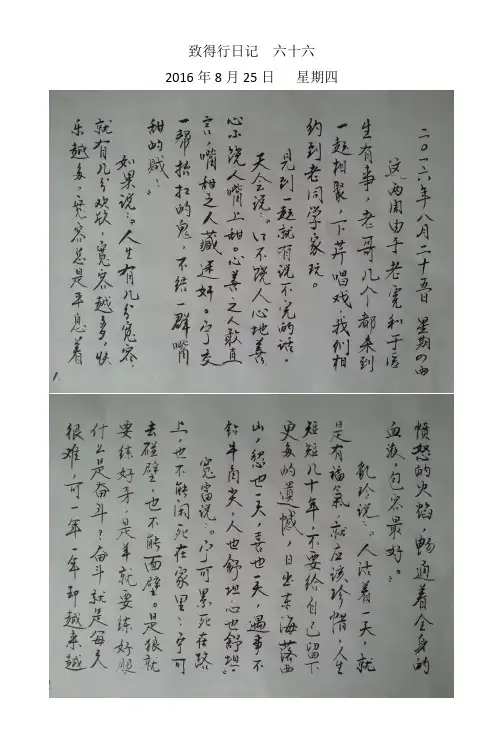 致得行日记 六十六
2016年8月25日 星期四
二〇一六年八月二十五日 星期四雨
这两周由于老宽和于医
生有事，老哥几个都未到
一起相聚，下芹唱戏，我们相
约到老同学家玩。
见到一起就有说不完的话。
天会说：“口不饶人心地善，
心不饶人嘴上甜。心善之人敢直
言，嘴甜之人藏迷奸。宁交
一帮抬扛的鬼，不结一群嘴
甜的贼”。
如果说：“人生有几分宽容，
就有几分欢欣，宽容越多，快
乐越多。宽容总是平息着
1.
愤怒的火焰，畅通着全身的
血液，包容最好。”
凯玲说：“人活着一天，就
是有福氣，就应该珍惜，人生
短短几十年，不要给自己留下
更多的遗憾，日出东海落西
山，愁也一天，喜也一天，遇事不
钻牛角尖，人也舒坦心也舒坦”
宽富说：“宁可累死在路
上，也不能闲死在家里；宁可
去碰壁，也不能面壁。是狼就
要练好牙，是羊就要练好腿
什么是奋斗？奋斗就是每天
很难，可一年一年却越来越